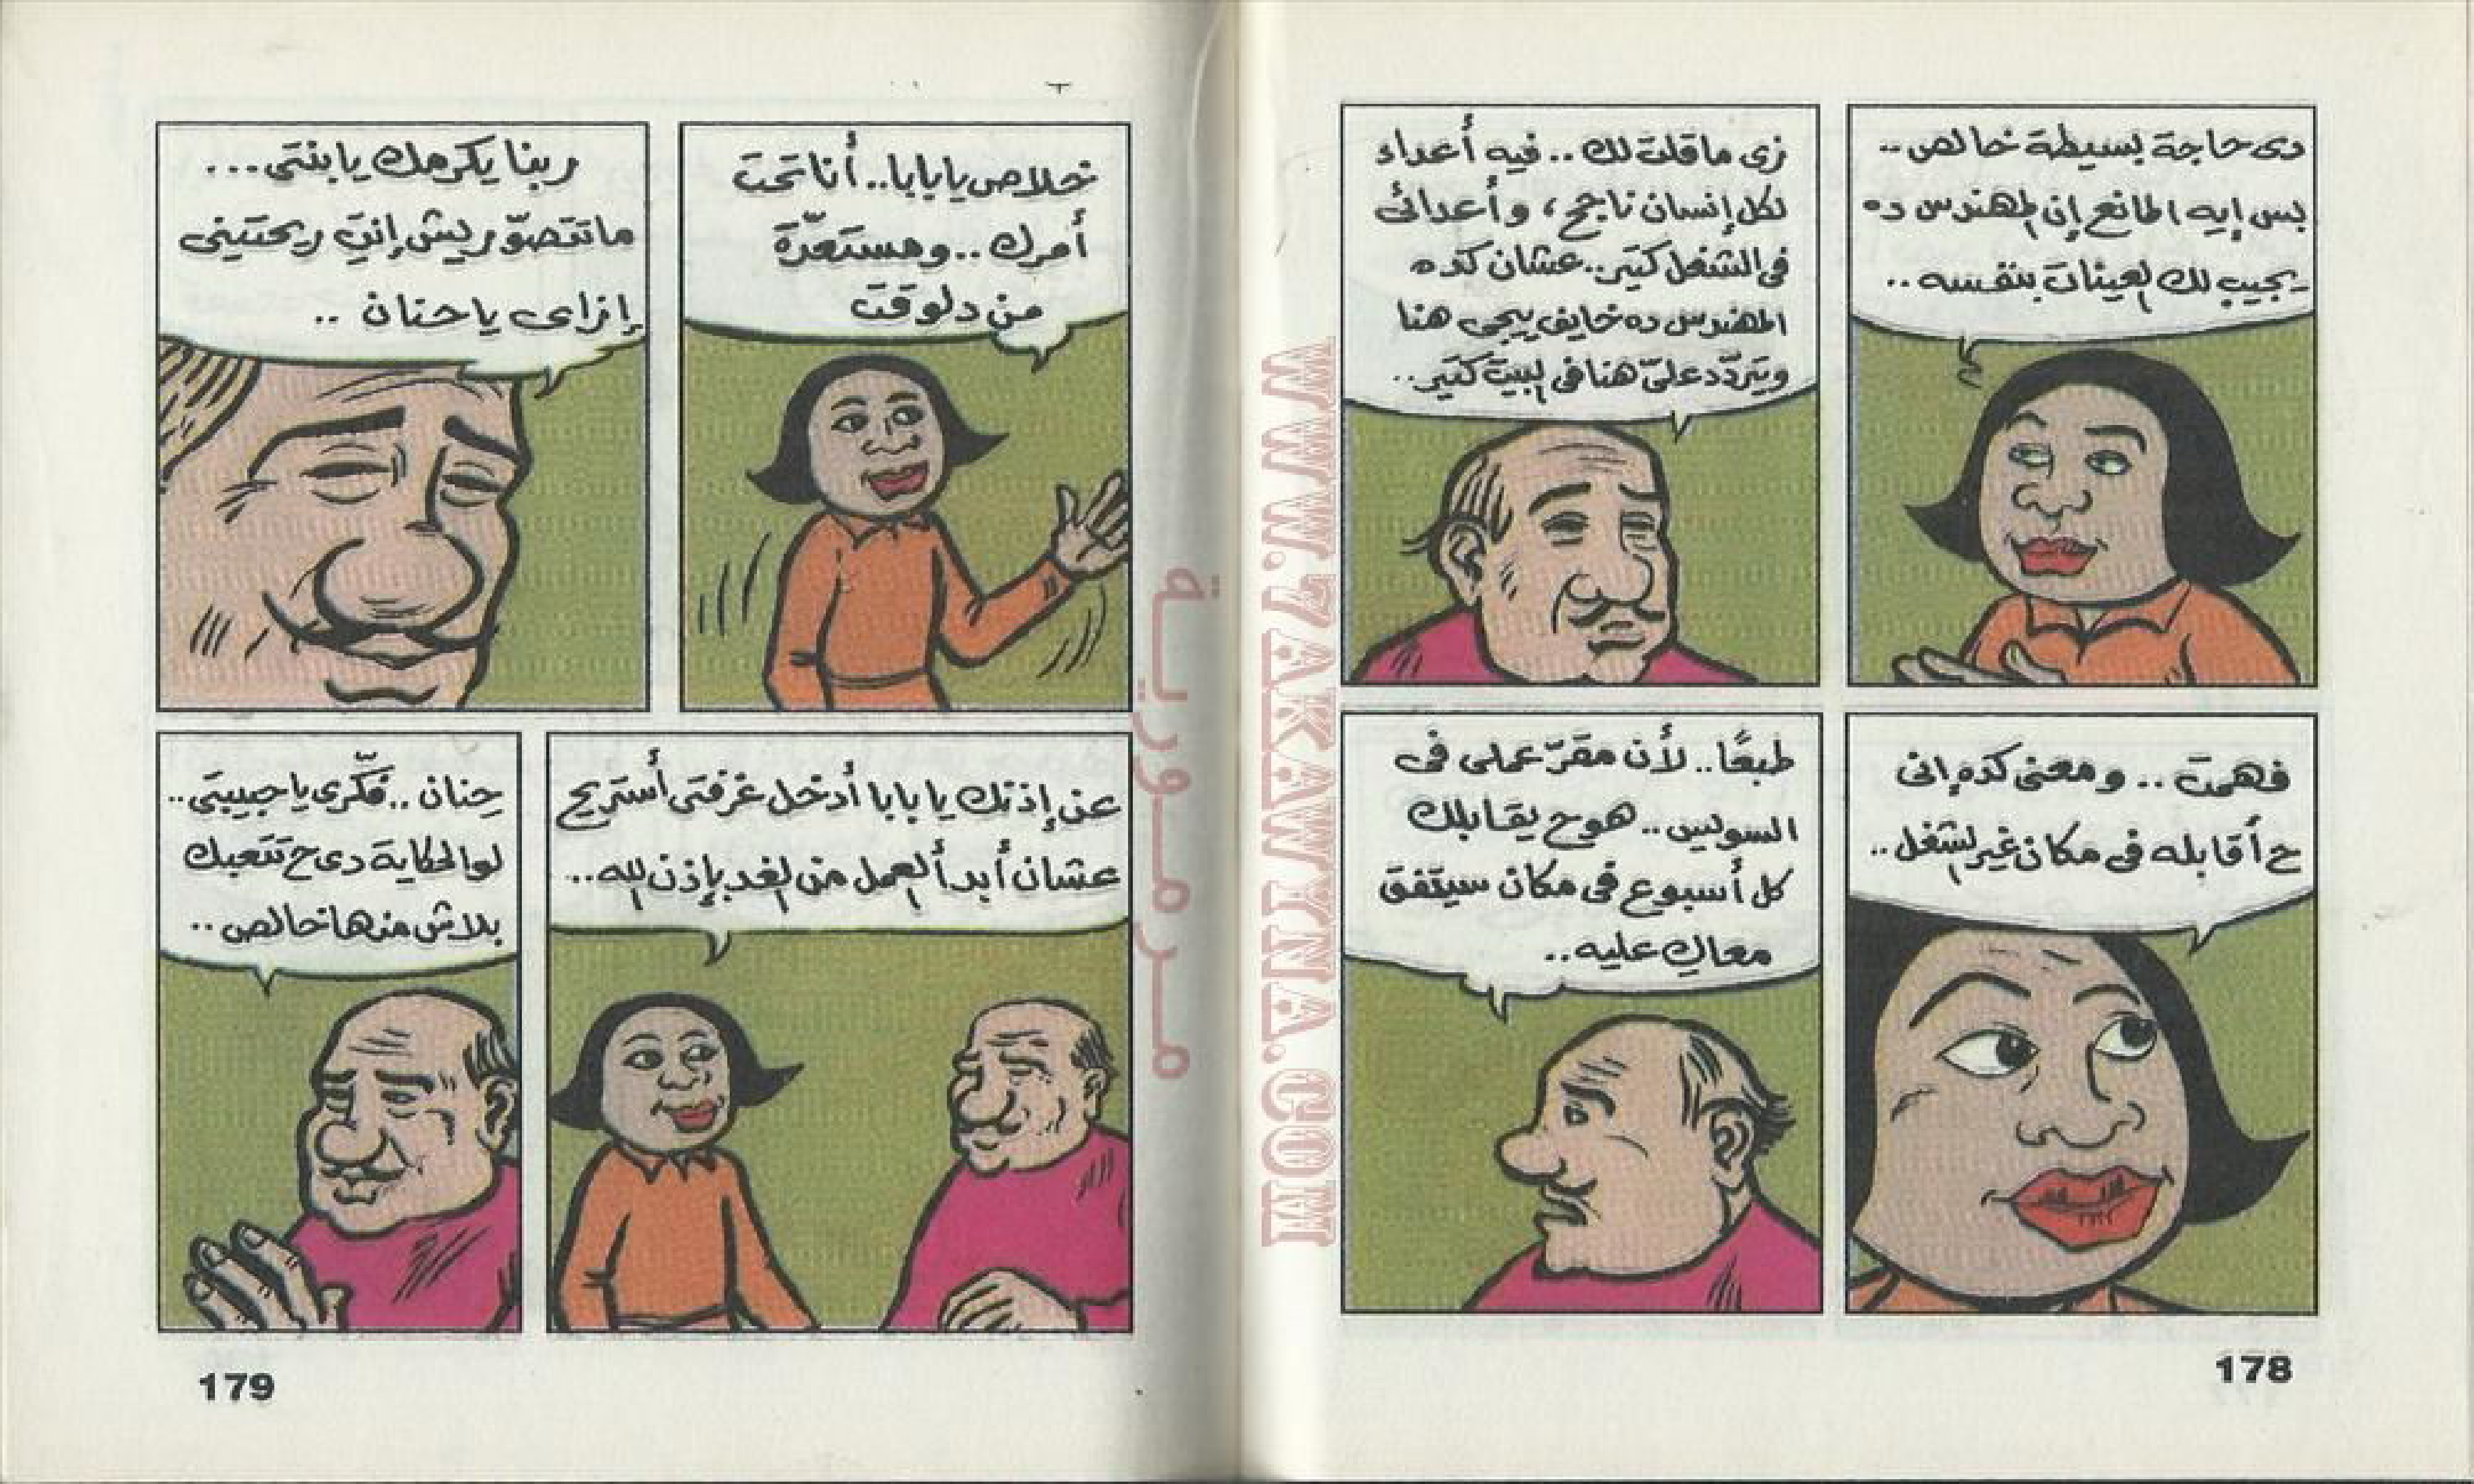 دى حاجة بسيطة خالص..
بس إيه المانع إن المهندس ده
يجيب لك العينات بنفسه..
زى ما قلت لك.. فيه أعداء
لكل إنسان ناجح، وأعدائى
فى الشغل كتير.. عشان كده
المهندس ده خايف ييجى هنا
ويتردّد علىّ هنا فى البيت كتير..
فهمت.. ومعنى كده إنى
ح أقابله فى مكان غير الشغل..
طبعًا.. لأن مقرّ عملى فى
السويس.. هو ح يقابلك
كل أسبوع فى مكان سيتفق
معاكِ عليه..
178
خلاص يا بابا.. أنا تحت
أمرك.. ومستعدّة
من دلوقت
ربنا يكرمك يا بنتى...
ما تتصوّريش إنتِ ريحتينى
إزاى يا حنان..
عن إذنك يا بابا أدخل غرفتى أستريح
عشان أبدأ العمل من الغد بإذن الله..
حنان.. فكّرى يا حبيبتى..
لو الحكاية دى ح تتعبك
بلاش منها خالص..
179
مرمورية
WWW.7AKAWYNA.COM